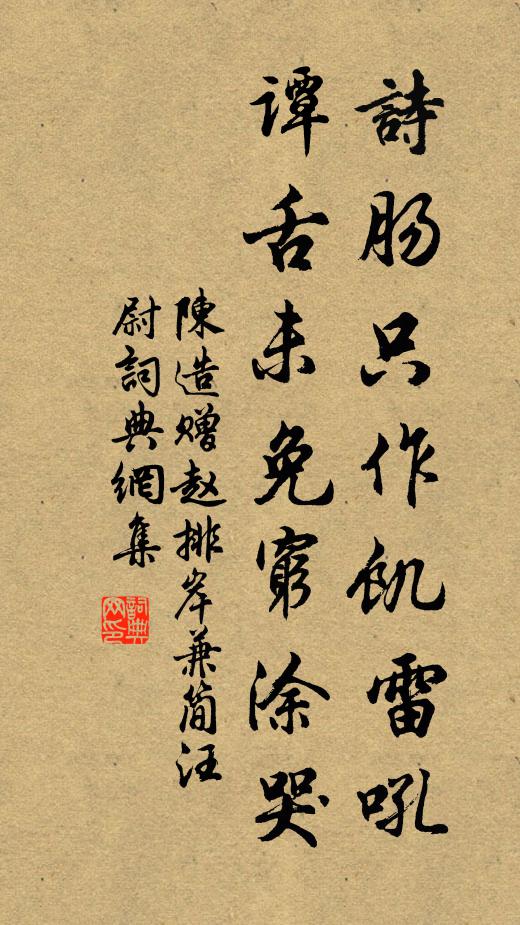 詩肠只作飢雷吼
谭舌未免窮涂哭
陳造赠赵排岸兼简汪
尉詞典網集
詞典
网印